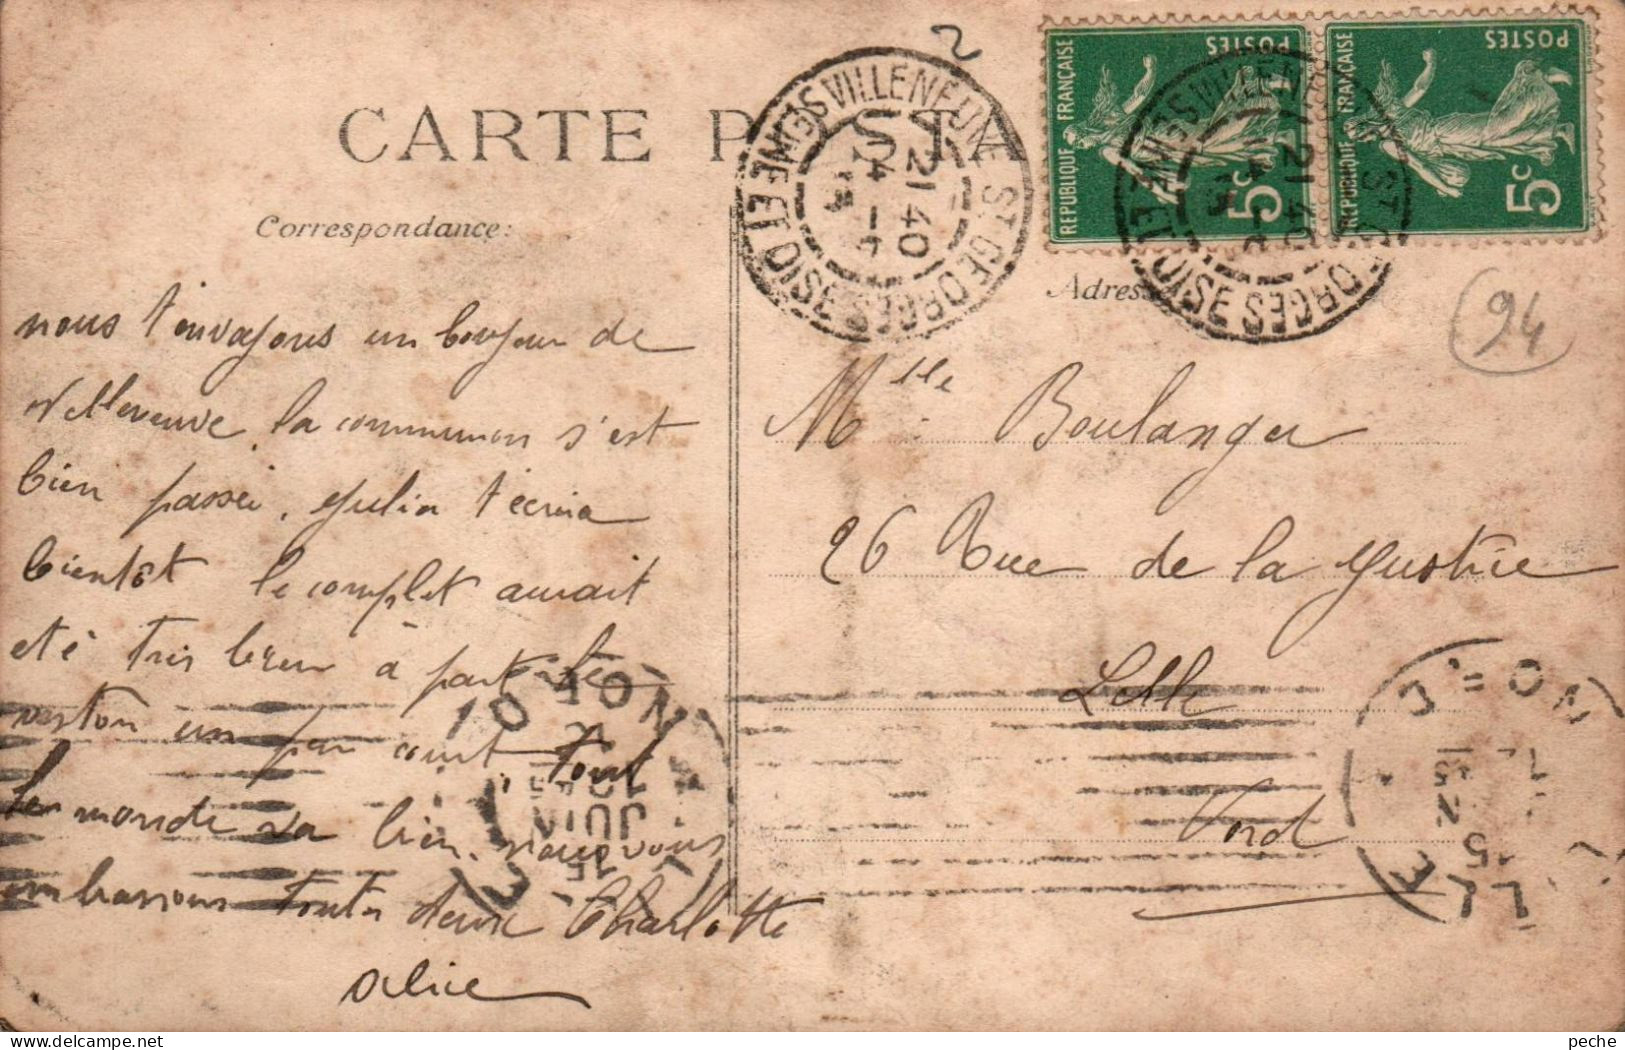 2
CARTE POSTA
RÉPUBLIQUE FRANÇAISE
POSTES
5c
RÉPUBLIQUE FRANÇAISE
POSTES
5c
VILLENEUVE ST GEORGES
SEINE ET OISE
21 40
VILLENEUVE ST GEORGES
SEINE ET OISE
21 40
Correspondance:
Adresse
94
nous t'envoyons un bonjour de
Villeneuve la communion s'est
bien passée, Julia t'écrira
bientôt le complet aurait
eté tris bien à part le
veston un peu court tout
le monde va bien. nous vous
embrassons toutes deux Charlotte
Alice
Mlle Boulanger
26 Rue de la Justice
Lille
Nord
JUIN
15
peche